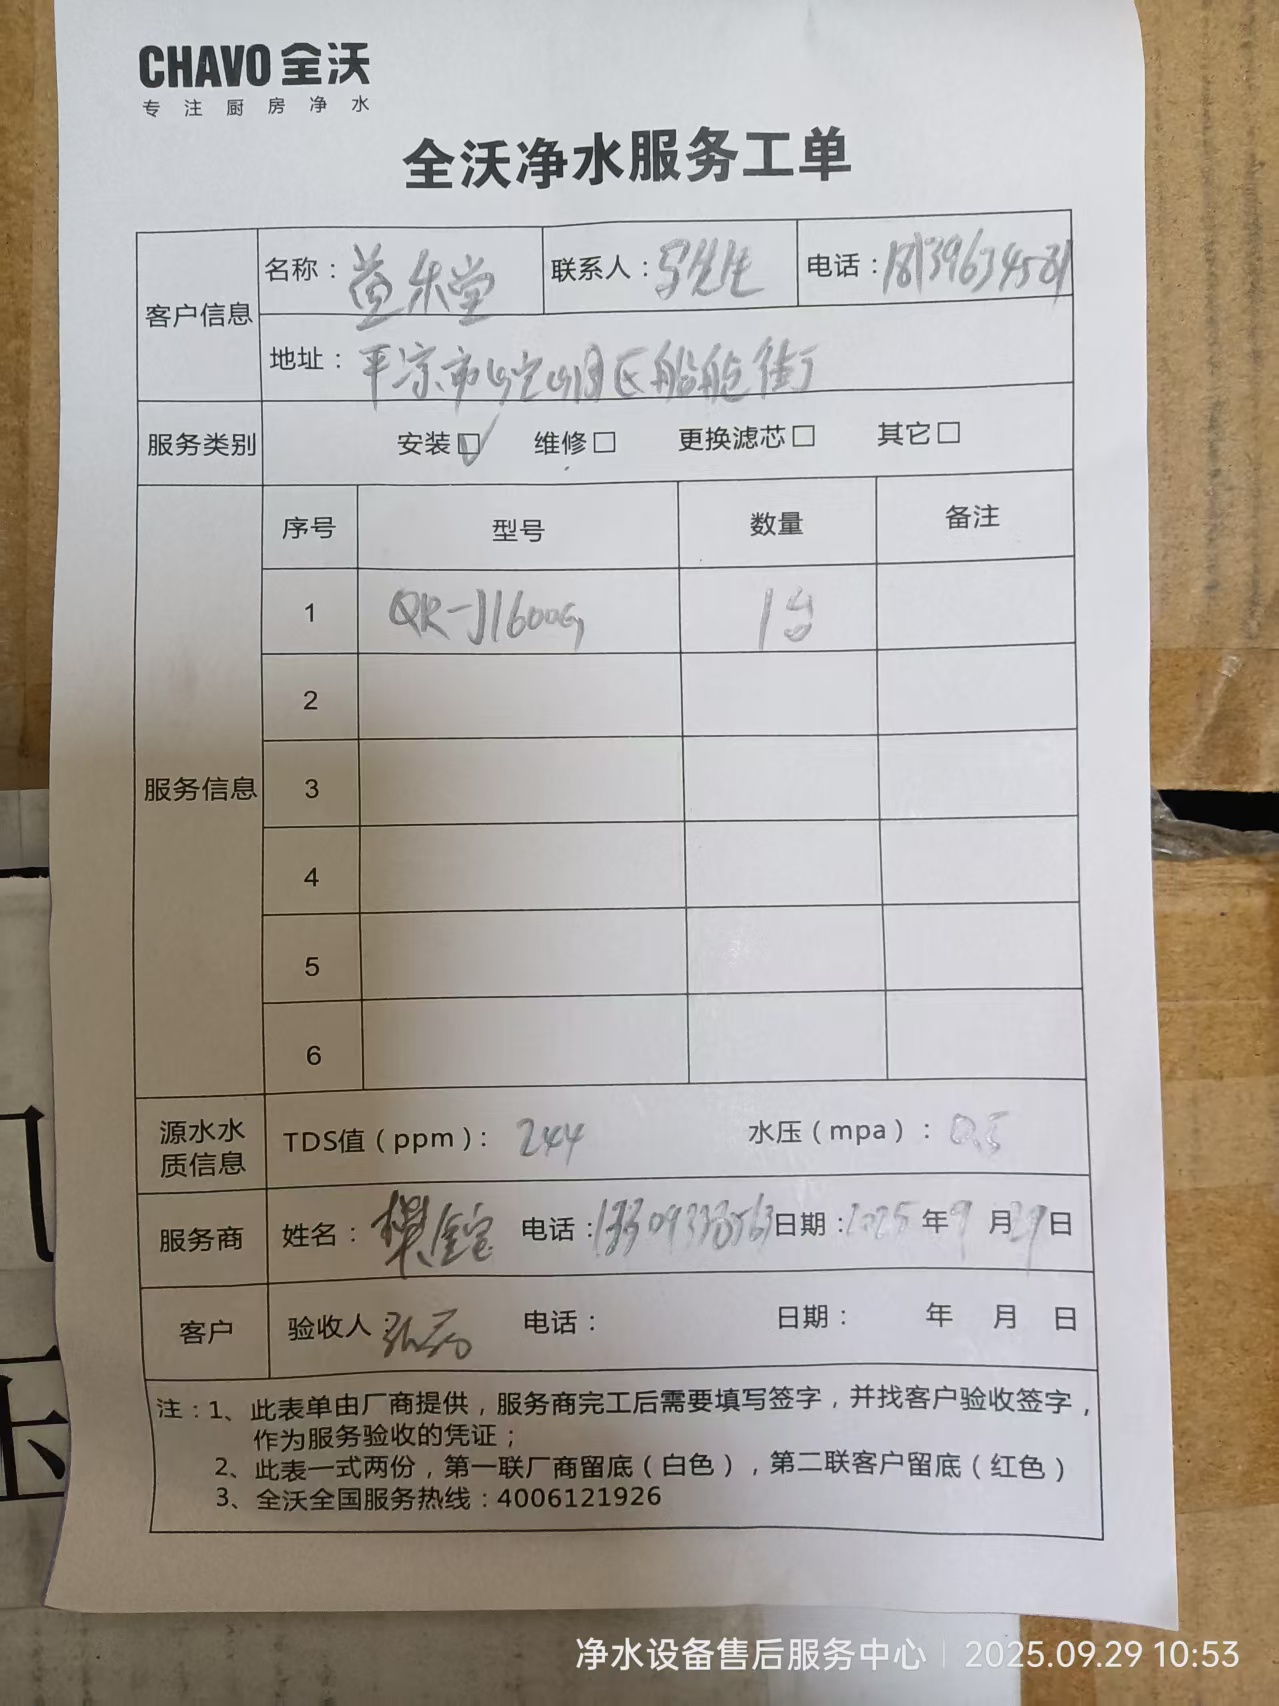 CHAVO 全沃
专注厨房净水
全沃净水服务工单
客户信息
名称：益乐堂 联系人：马先生 电话：18139634581
地址：平凉市崆峒区船舱街
服务类别 安装☑ 维修□ 更换滤芯□ 其它□
服务信息
序号 型号 数量 备注
1 QR-J1600G 1台
2
3
4
5
6
源水水质信息 TDS值（ppm）：244 水压（mpa）：0.5
服务商 姓名：樊宝 电话： 日期：2025年9月29日
客户 验收人 电话： 日期： 年 月 日
注：1、此表单由厂商提供，服务商完工后需要填写签字，并找客户验收签字，
作为服务验收的凭证；
2、此表一式两份，第一联厂商留底（白色），第二联客户留底（红色）
3、全沃全国服务热线：4006121926
净水设备售后服务中心 | 2025.09.29 10:53